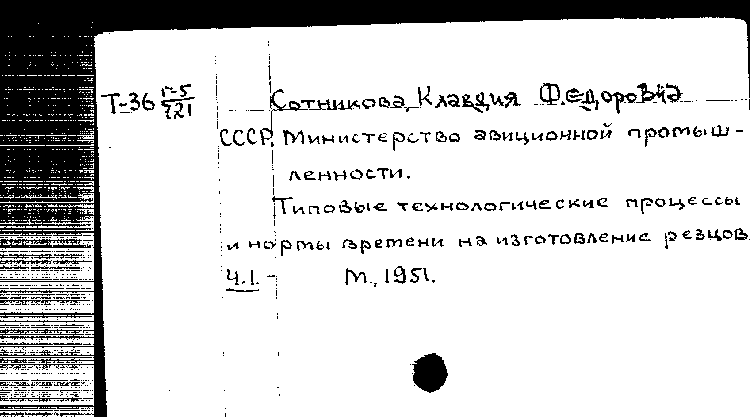 Т-36 г-5/721
Сотникова, Клавдия Федоровна
СССР. Министерство авиционной промыш-
ленности.
Типовые технологические процессы
и нормы времени на изготовление резцов.
Ч.1. - М., 1951.